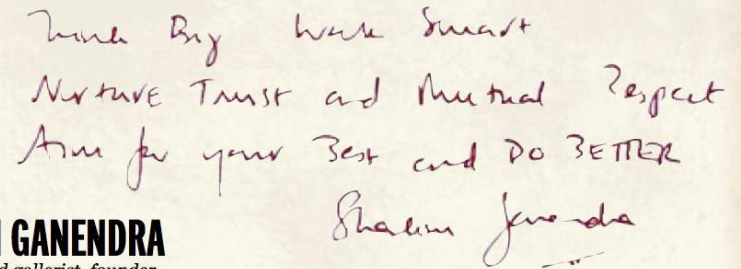 Think Big Work Smart
Nurture Trust and Mutual Respect
Aim for your Best and DO BETTER
Shalini Ganendra
GANENDRA
gallerist, founder